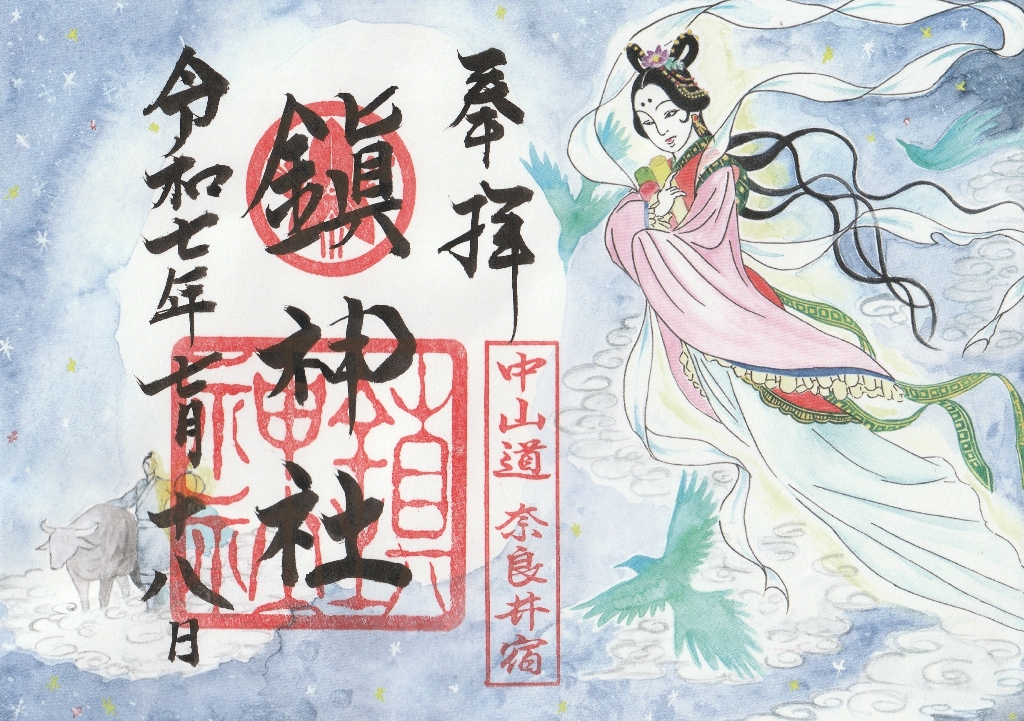 奉拝
中山道 奈良井宿
鎮神社
令和七年七月十八日